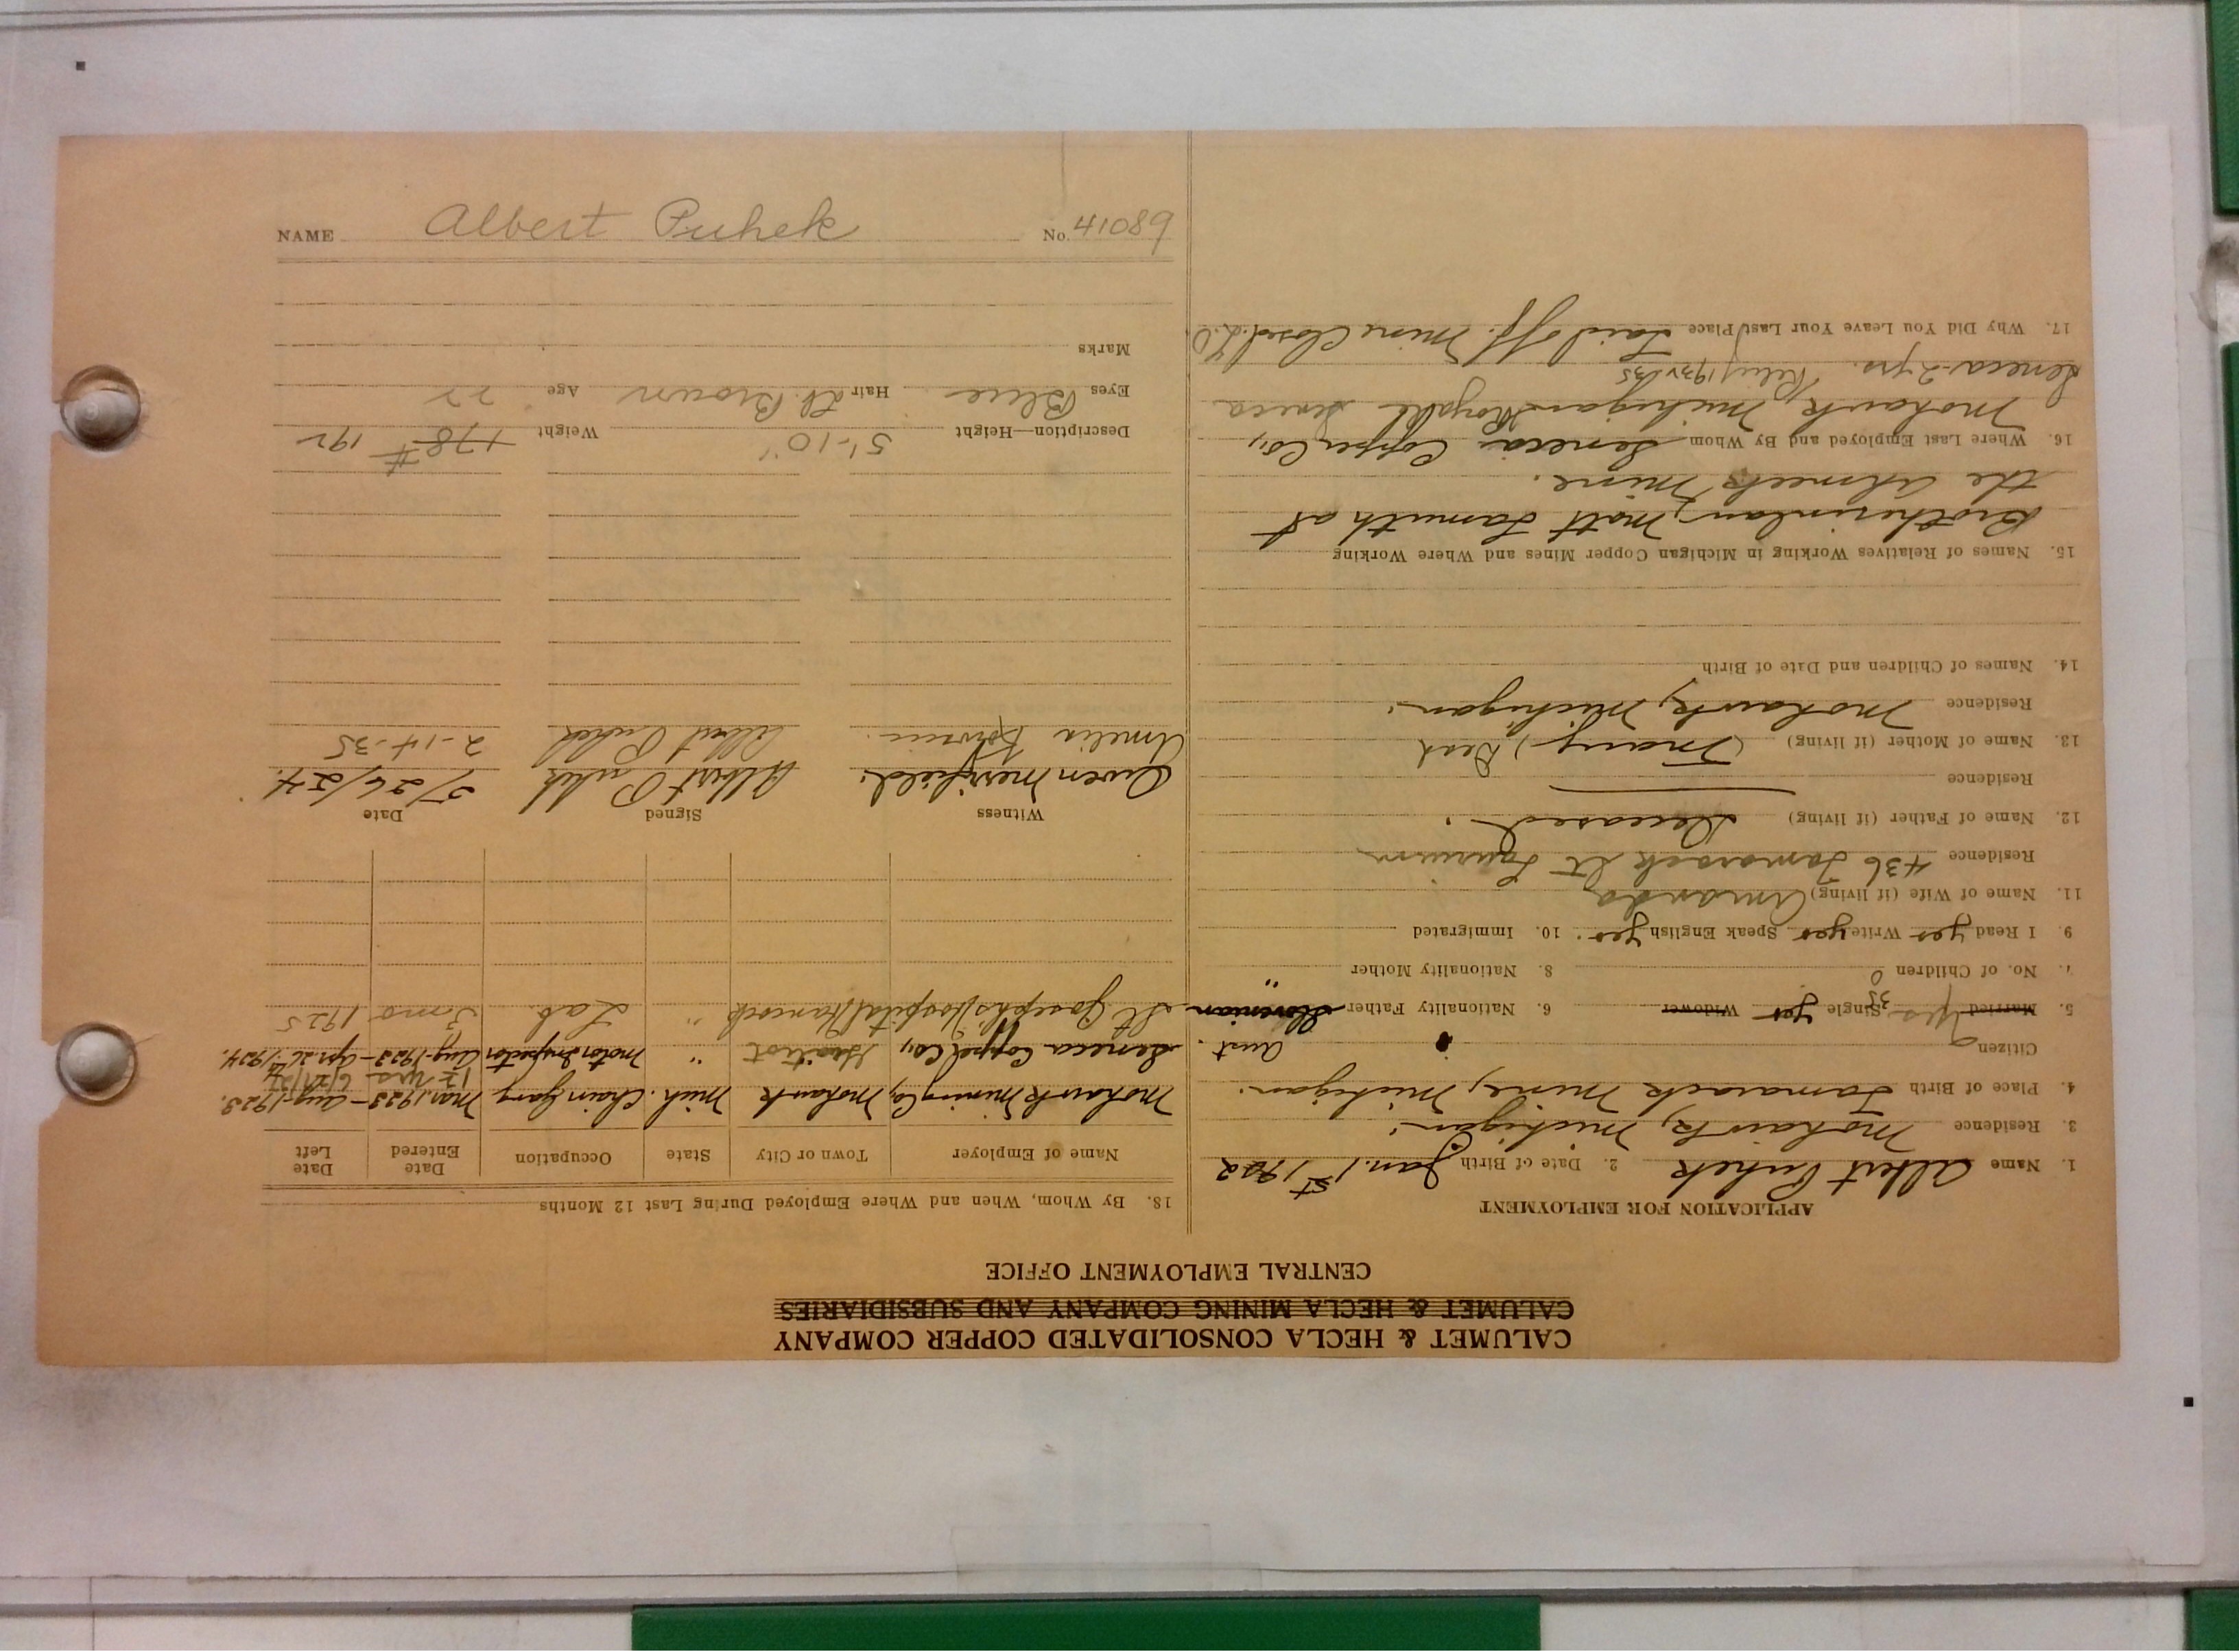 CALUMET & HECLA CONSOLIDATED COPPER COMPANY
CALUMET & HECLA MINING COMPANY AND SUBSIDIARIES
CENTRAL EMPLOYMENT OFFICE
APPLICATION FOR EMPLOYMENT
1. Name Albert Puhek 2. Date of Birth Jan. 1st, 1902
3. Residence Mohawk, Michigan.
4. Place of Birth Tamarack Mine, Michigan.
Citizen
5. Married Yes 35 Single yes Widower 6. Nationality Father Slovenian Aust.
7. No. of Children 0 8. Nationality Mother "
9. I Read yes Write yes Speak English yes. 10. Immigrated
11. Name of Wife (if living) Amanda
Residence 436 Tamarack St Laurium
12. Name of Father (if living) Deceased.
Residence
13. Name of Mother (if living) (Mary) Dead
Residence Mohawk, Michigan.
14. Names of Children and Date of Birth
15. Names of Relatives Working in Michigan Copper Mines and Where Working
Brotherinlaw, Matt Lamuth at
the Ahmeek Mine.
16. Where Last Employed and By Whom Seneca Copper Co.,
Mohawk, Michigan. Royale Seneca
Seneca 2 yrs. Relief 1934/35
17. Why Did You Leave Your Last Place Laid off. Mine Closed. L.O.
18. By Whom, When and Where Employed During Last 12 Months
Name of Employer Town or City State Occupation Date Entered Date Left
Mohawk Mining Co., Mohawk Mich. Chain Gang Mar. 1923 - Aug. 1923.
1½ yrs 6/27/24
Seneca Copper Co., " Motor Inspector Aug. 1923 - Apr. 26, 1924.
St Josephs Hospital Hancock " Lab. 3 mo 1925
Witness Signed Date
Owen Merrifield. Albert Puhek 5/26/24.
Amelia Albert Puhek 2-14-35
Description—Height 5'-10" Weight 178# 192
Eyes Blue Hair Lt. Brown Age 22
Marks
NAME Albert Puhek No. 41089